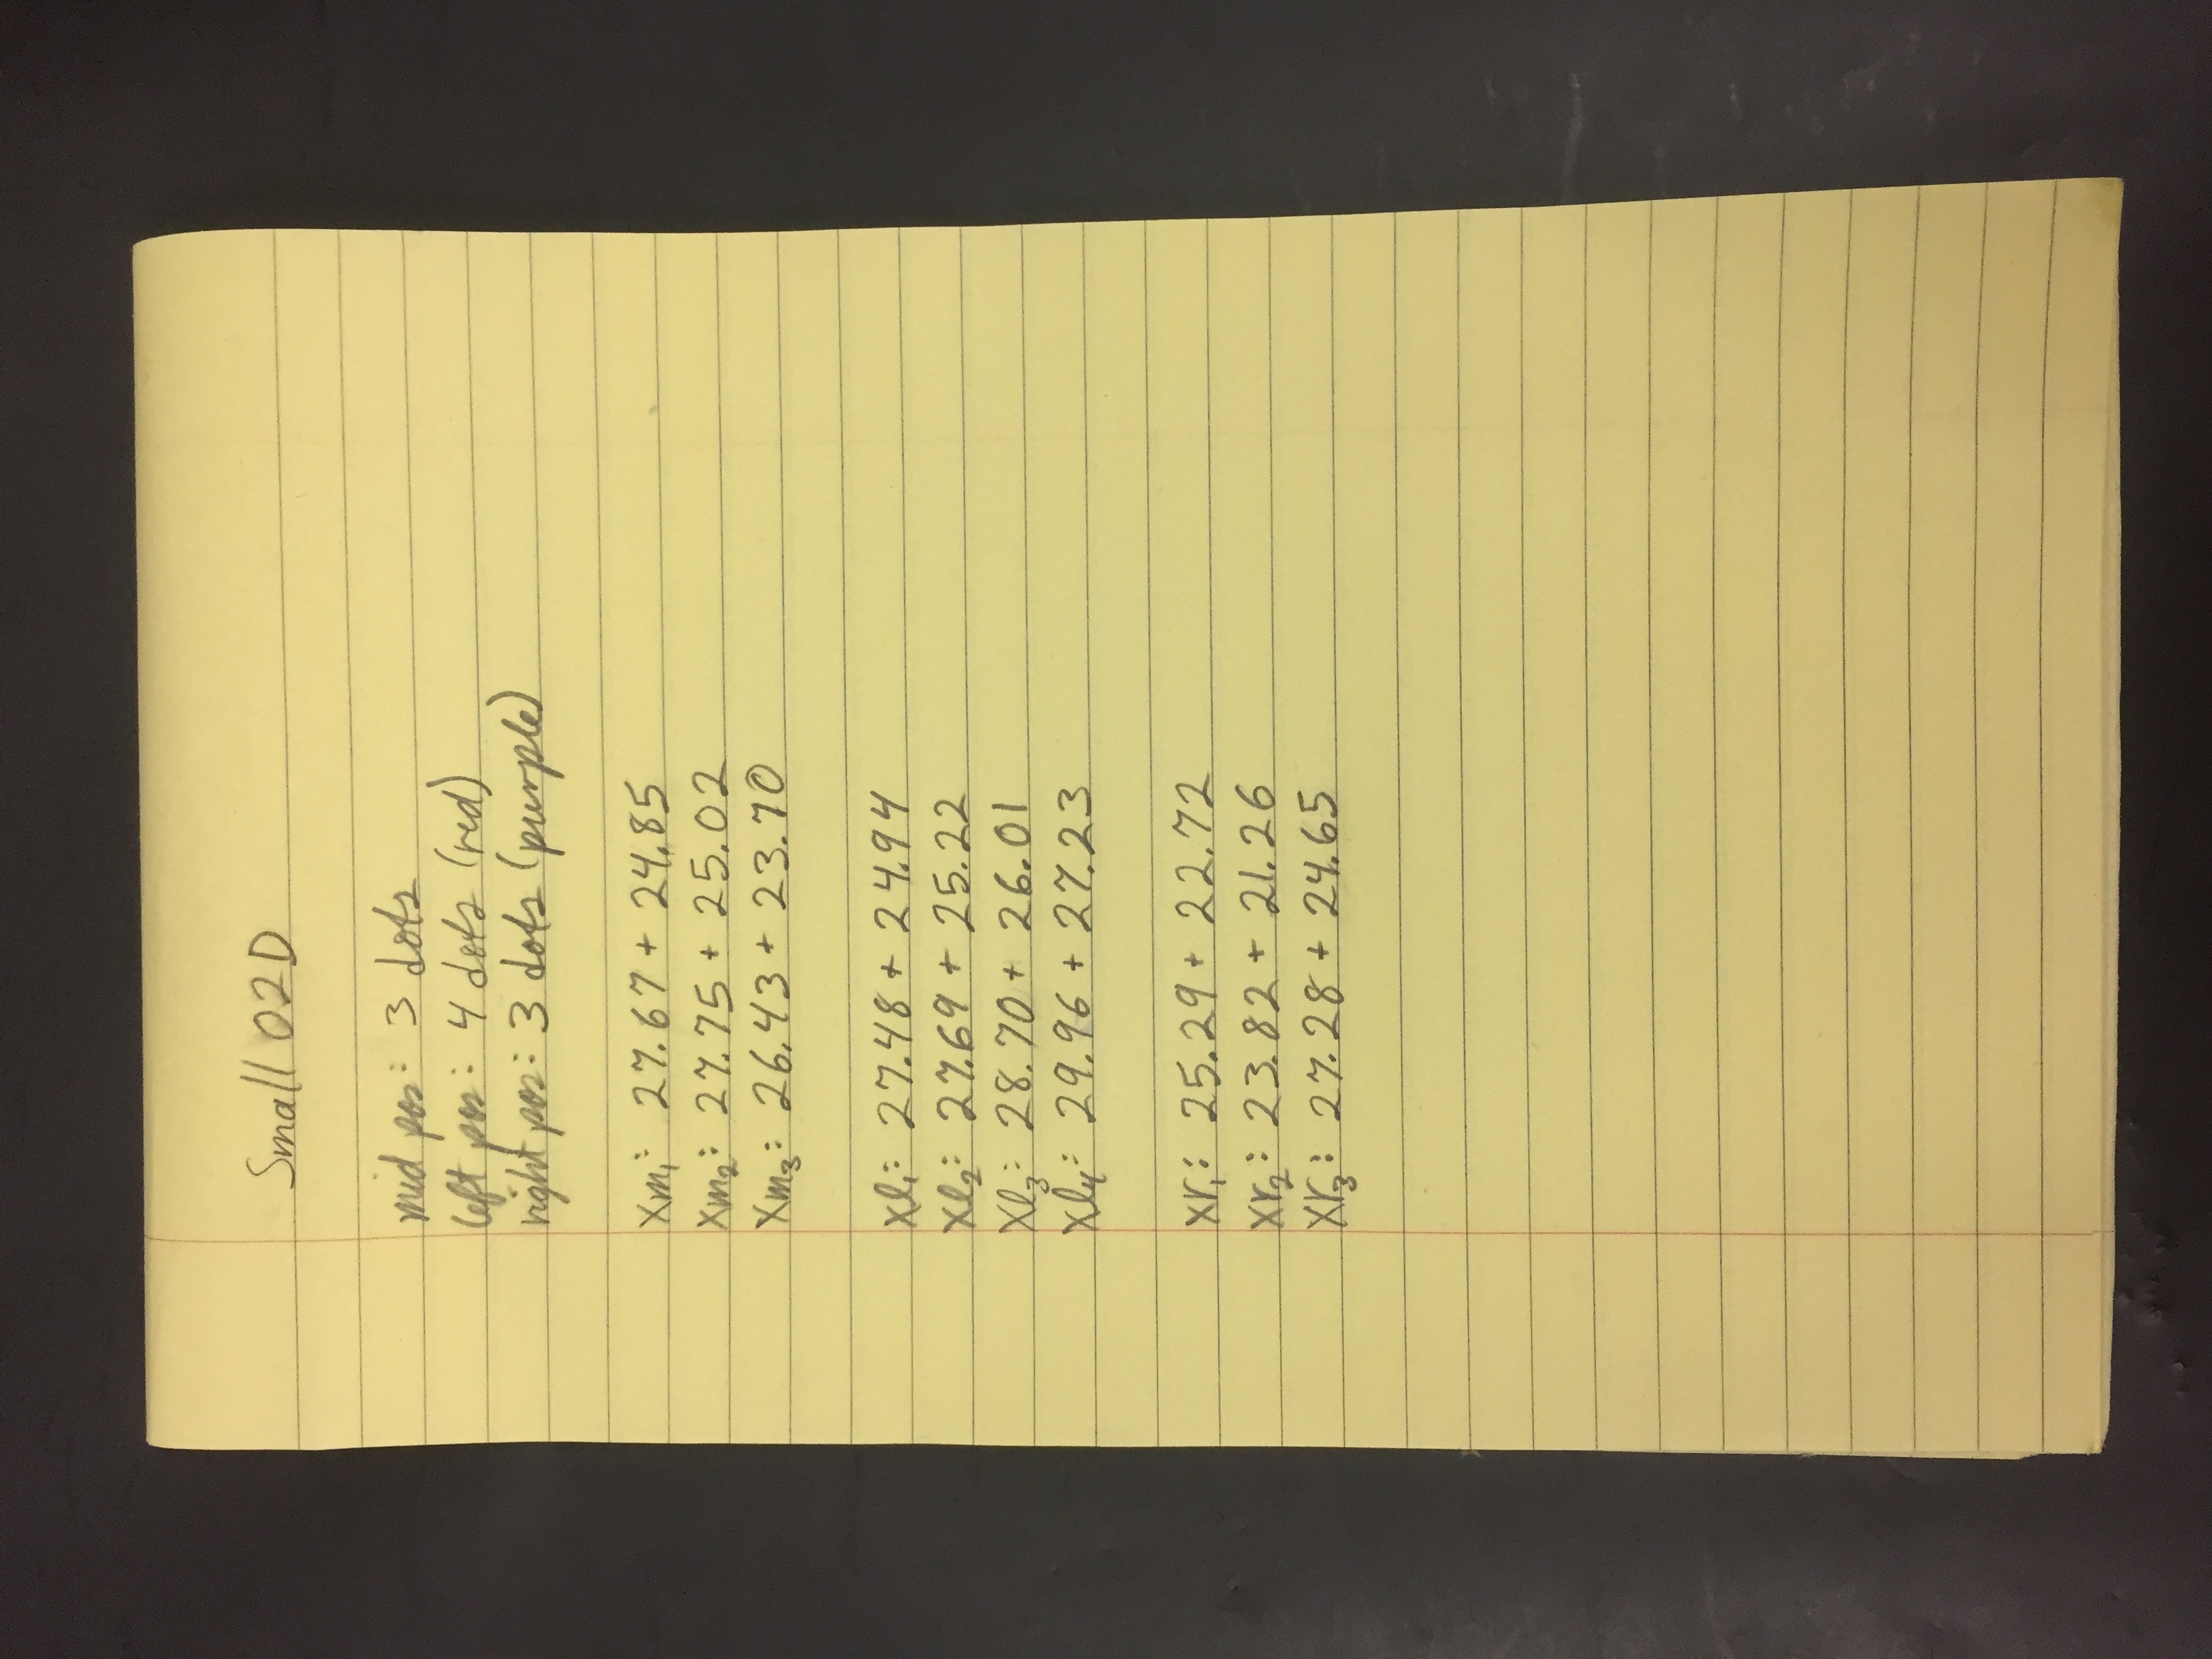 Small 02D
mid pos: 3 dots
left pos: 4 dots (red)
right pos: 3 dots (purple)
Xm₁: 27.67 + 24.85
Xm₂: 27.75 + 25.02
Xm₃: 26.43 + 23.70
Xl₁: 27.48 + 24.94
Xl₂: 27.69 + 25.22
Xl₃: 28.70 + 26.01
Xl₄: 29.96 + 27.23
Xr₁: 25.29 + 22.72
Xr₂: 23.82 + 21.26
Xr₃: 27.28 + 24.65